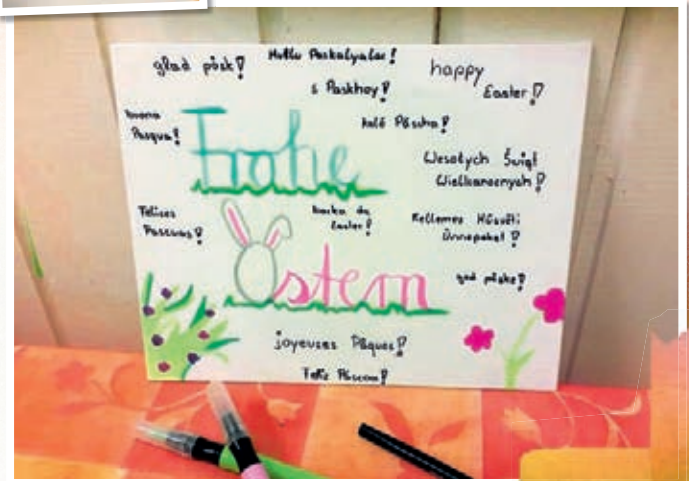 glad påsk!
Mutlu Paskalyalar!
happy
Easter!
s Paskhoy!
buona
Pasqua!
kaló Páscha!
Frohe
Wesołych Świąt
Wielkanocnych!
Felices
Pascuas!
baraka da
Easter!
Kellemes Húsvéti
Ünnepeket!
Ostern
god påske!
joyeuses Pâques!
Feliz Páscoa!